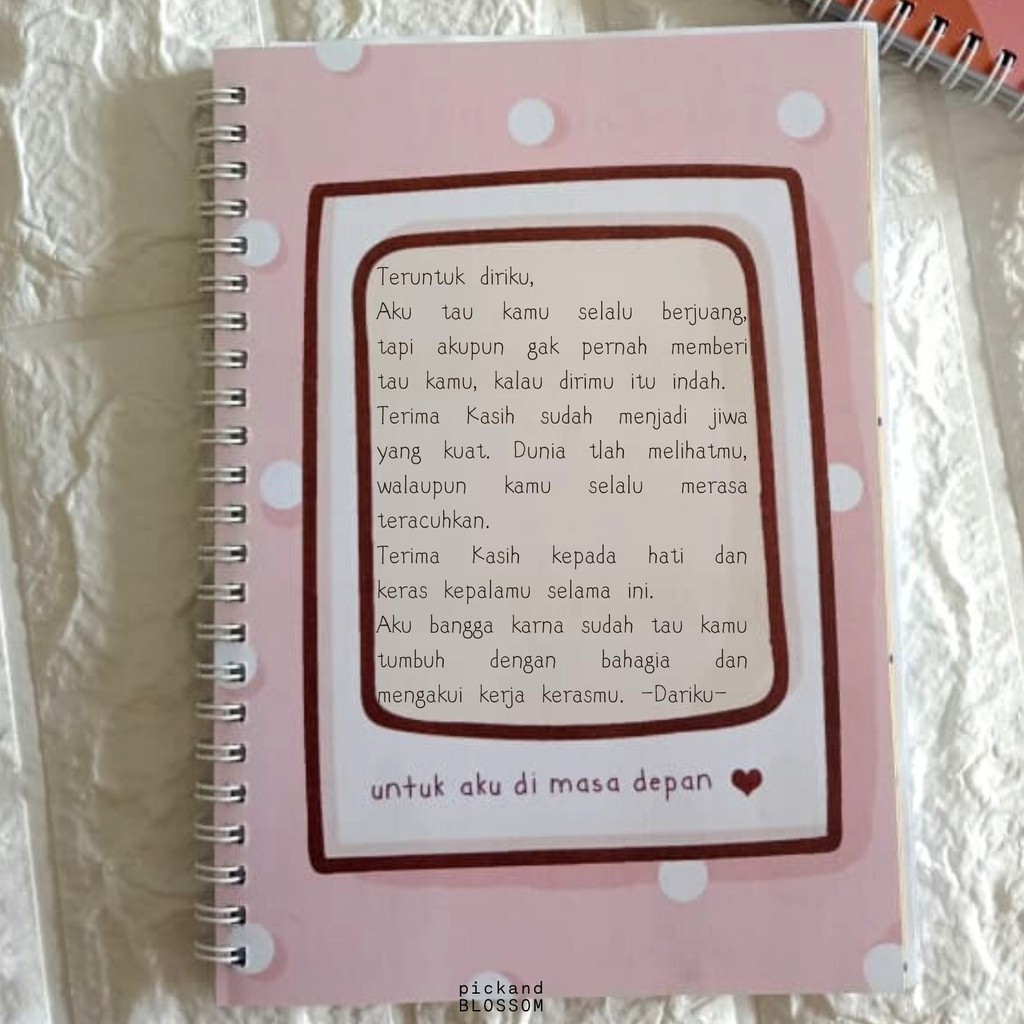 Teruntuk diriku,
Aku tau kamu selalu berjuang,
tapi akupun gak pernah memberi
tau kamu, kalau dirimu itu indah.
Terima Kasih sudah menjadi jiwa
yang kuat. Dunia tlah melihatmu,
walaupun kamu selalu merasa
teracuhkan.
Terima Kasih kepada hati dan
keras kepalamu selama ini.
Aku bangga karna sudah tau kamu
tumbuh dengan bahagia dan
mengakui kerja kerasmu. -Dariku-
untuk aku di masa depan
pickand
BLOSSOM